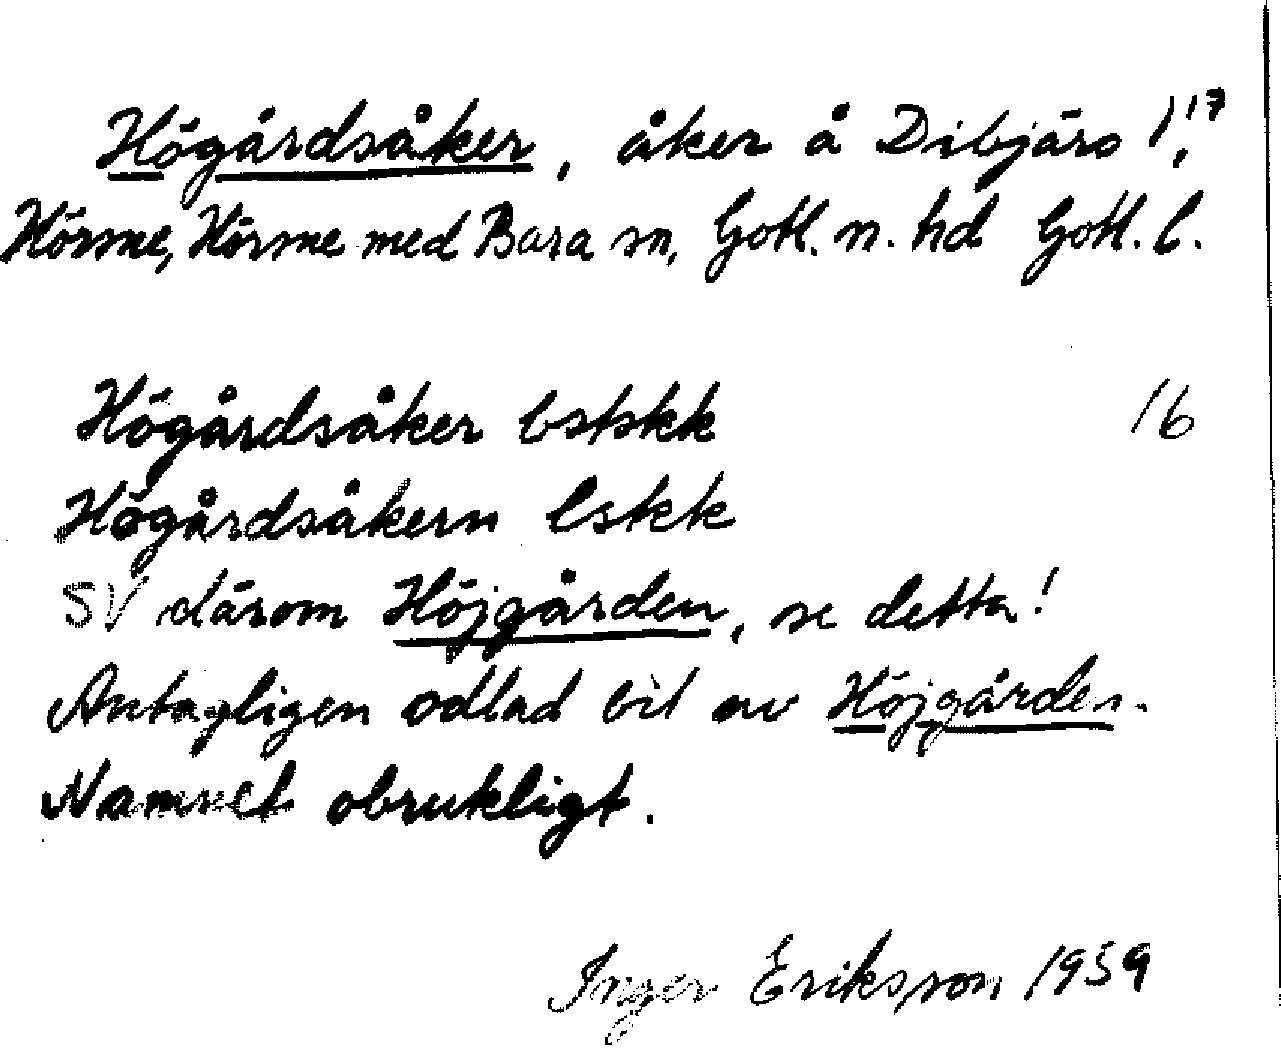 Högårdsåker, åker å Dibjärs 1¹⁷,
Hörsne, Hörsne med Bara sn, Gotl. n. hd Gotl. l.
Högårdsåker lstskk 16
Högårdsåkern lskk
SV därom Höjgården, se detta!
Antagligen odlad bit av Höjgården.
Namnet obrukligt.
Inger Eriksson 1959